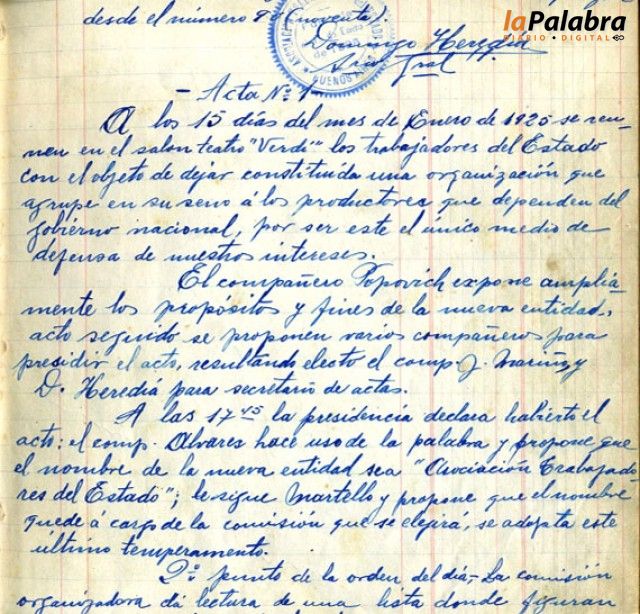 laPalabra
DIARIO DIGITAL
desde el número 90 (noventa).
Domingo Heredia
Srio Gral
BUENOS
- Acta Nº 1 -
A los 15 días del mes de Enero de 1925 se reu-
nen en el salon teatro "Verdi" los trabajadores del Estado
con el objeto de dejar constituída una organización que
agrupe en su seno á los productores que dependen del
gobierno nacional, por ser este el único medio de
defensa de nuestros intereses.
El compañero Popovich expone amplia-
mente los propósitos y fines de la nueva entidad,
acto seguido se proponen varios compañeros para
presidir el acto, resultando electo el comp. J. Mariño, y
D. Herediá para secretario de actas.
A las 17 45 la presidencia declara habierto el
acto: el comp. Alvares hace uso de la palabra y propone que
el nombre de la nueva entidad sea "Asociación Trabajado-
res del Estado"; le sigue Martello y propone que el nombre
quede á cargo de la comisión que se elegirá, se adopta este
último temperamento.
2º punto de la orden del día - La comisión
organizadora dá lectura de una lista donde figuran